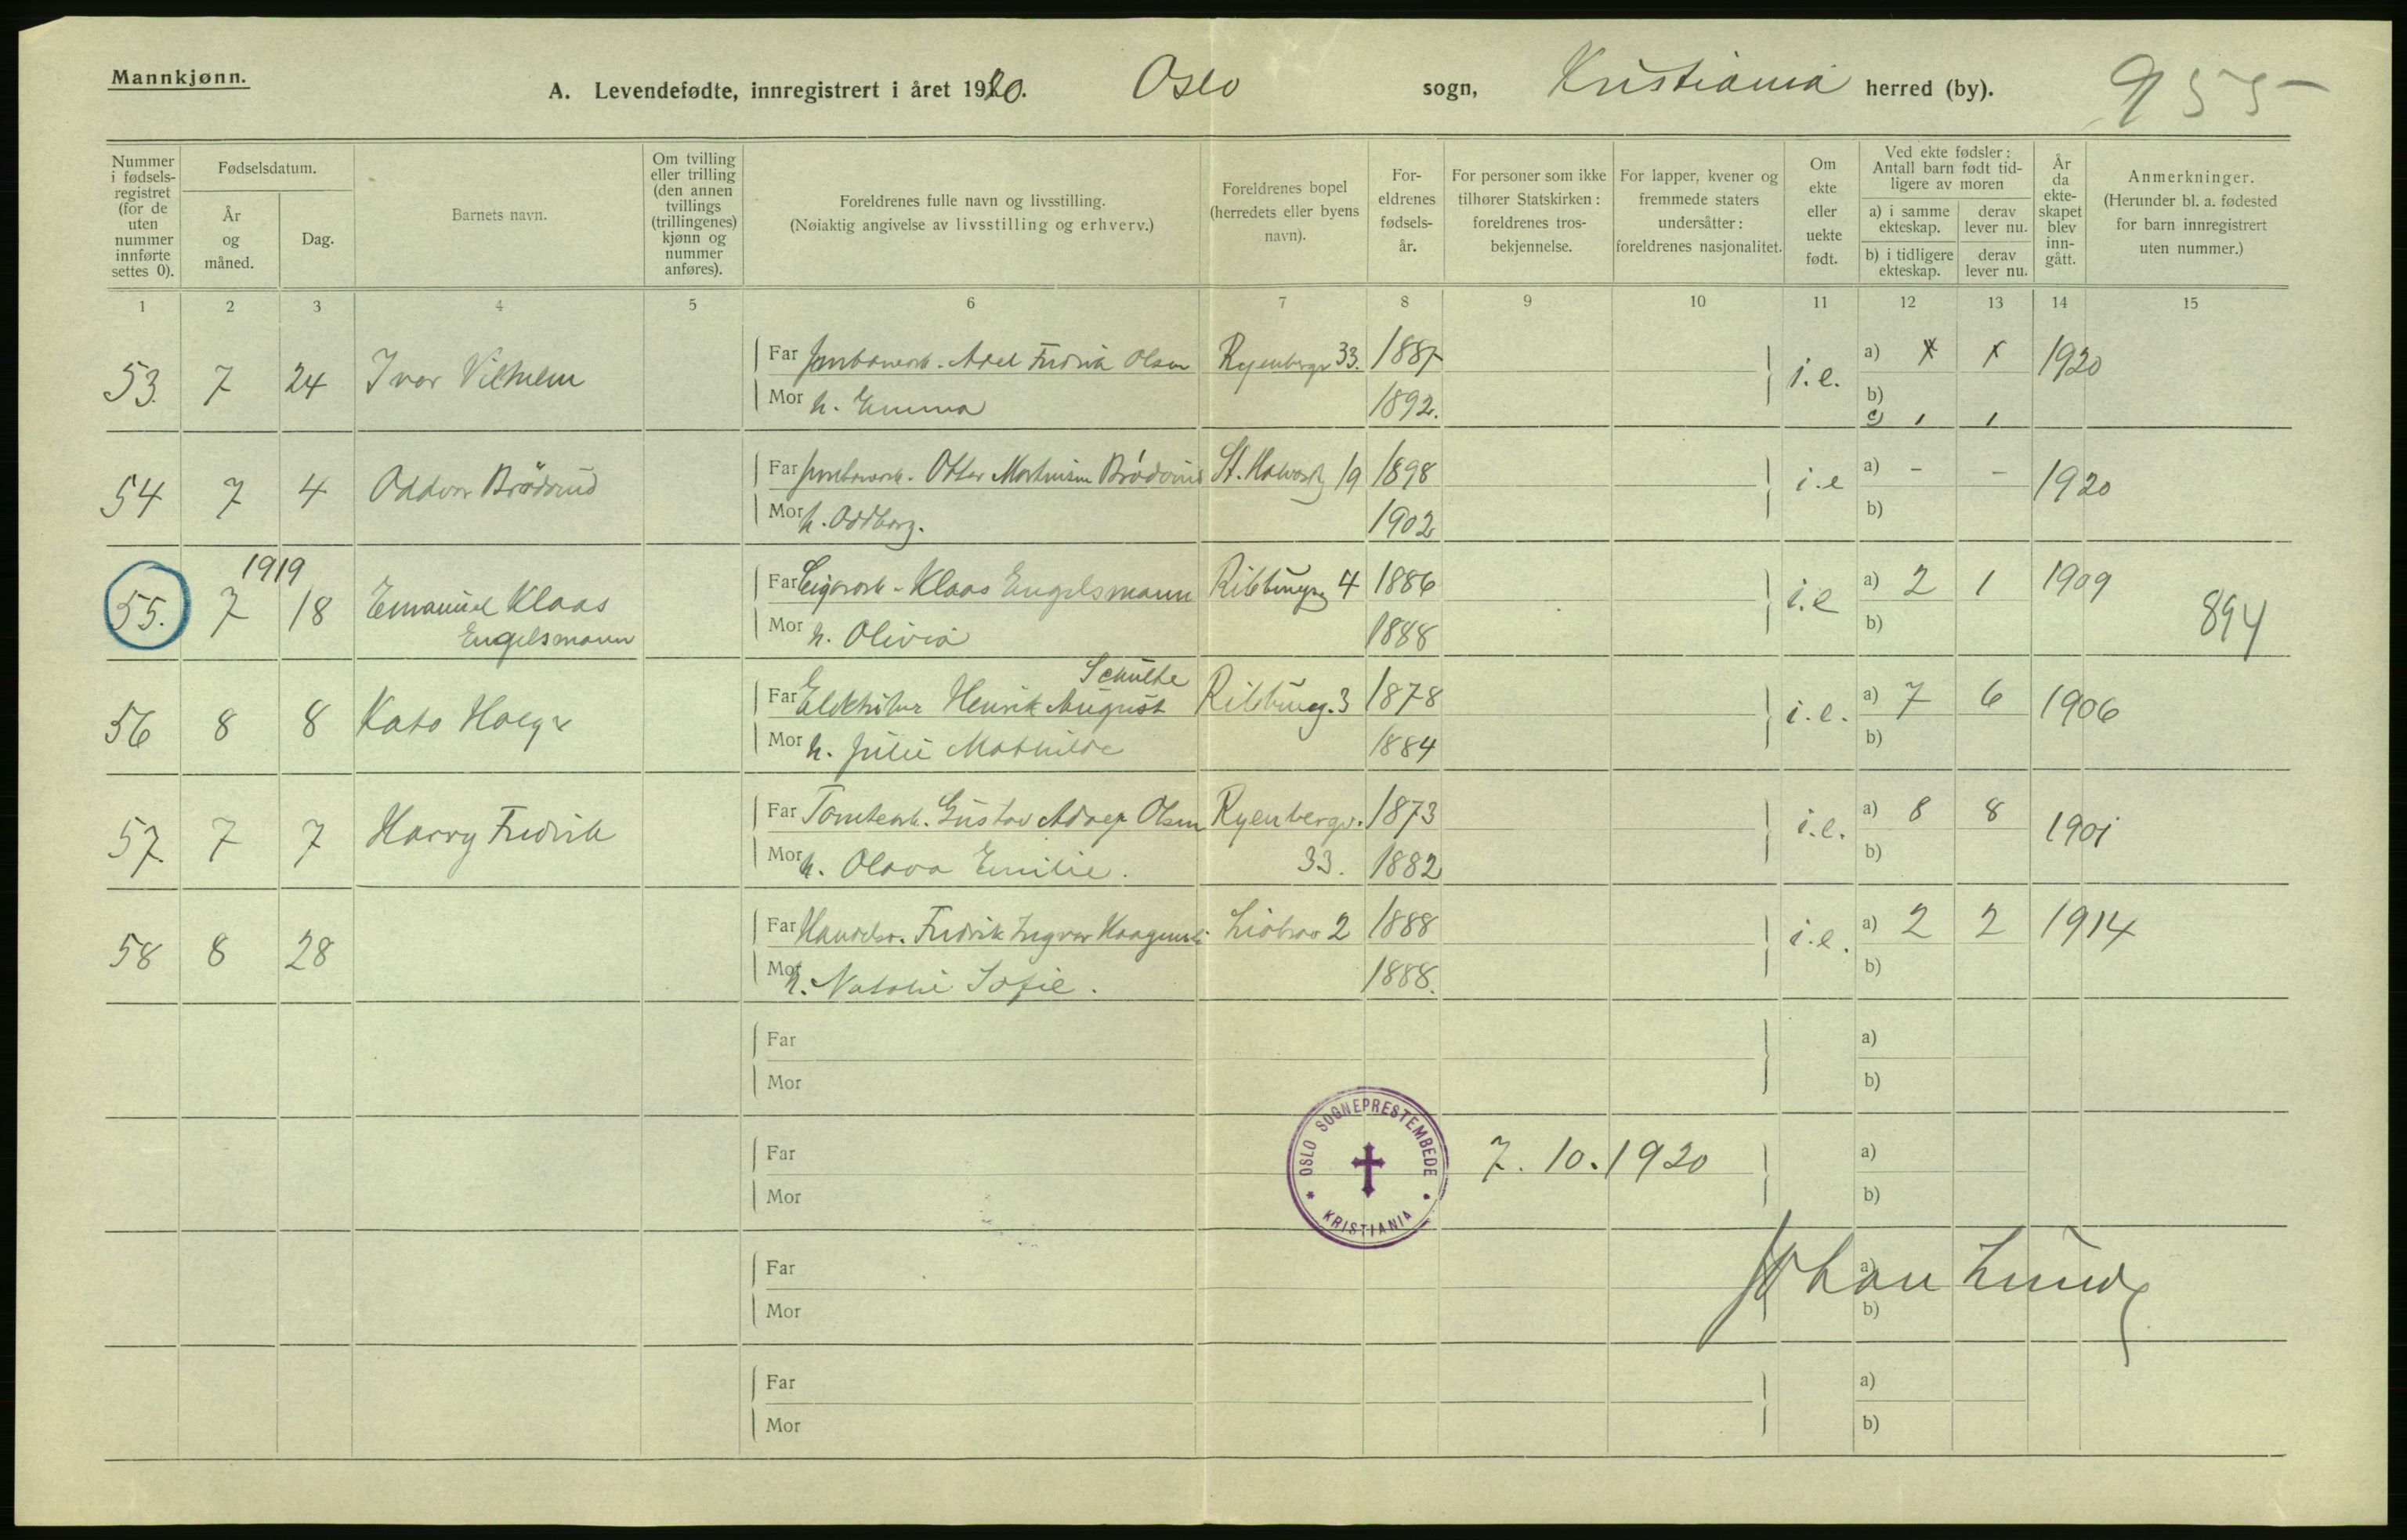 Mannkjønn.
A. Levendefødte, innregistrert i året 1920. Oslo sogn, Kristiania herred (by). 955
Nummer i fødselsregistret (for de uten nummer innførte settes 0).
Fødselsdatum.
År og måned.
Dag.
Barnets navn.
Om tvilling eller trilling (den annen tvillings (trillingenes) kjønn og nummer anføres).
Foreldrenes fulle navn og livsstilling.
(Nøiaktig angivelse av livsstilling og erhverv.)
Foreldrenes bopel (herredets eller byens navn).
Foreldrenes fødselsår.
For personer som ikke tilhører Statskirken: foreldrenes trosbekjennelse.
For lapper, kvener og fremmede staters undersåtter: foreldrenes nasjonalitet.
Om ekte eller uekte født.
Ved ekte fødsler: Antall barn født tidligere av moren
a) i samme ekteskap. derav lever nu.
b) i tidligere ekteskap. derav lever nu.
År da ekteskapet blev inngått.
Anmerkninger.
(Herunder bl. a. fødested for barn innregistrert uten nummer.)
1 2 3 4 5 6 7 8 9 10 11 12 13 14 15
53. 7 24 Ivar Vilhelm Far Axel Fredrik Olsen Ryenbergv 33. 1887 i.e. a) x x 1920
Mor h. Emma 1892. b)
c) 1 1
54 7 4 Oddvar Brödrud Far Brödrud St. Halvardsg 19 1898 i.e a) - - 1920
Mor h. Oddborg. 1902 b)
1919
55. 7 18 Emanuel Klaas Far Klaas Engelsmann 4 1886 i.e a) 2 1 1909 894
Engelsmann Mor h. Olivia 1888 b)
Schulte
56 8 8 Kato Holger Far Henrik August 3 1878 i.e. a) 7 6 1906
Mor h. Julie Mathilde 1884 b)
57. 7 7 Harry Fredrik Far Tomtearb. Gustav Adolf Olsen Ryenbergv. 1873 i.e. a) 8 8 1901
Mor h. Olava Emilie. 33. 1882 b)
58 8 28 Far Fredrik Ingvar 2 1888 i.e. a) 2 2 1914
Mor h. Natalie Sofie. 1888. b)
Far a)
Mor b)
OSLO SOGNEPRESTEMBEDE
KRISTIANIA
Far 7. 10. 1920 a)
Mor b)
Far a)
Johan Lund
Mor b)
Far a)
Mor b)